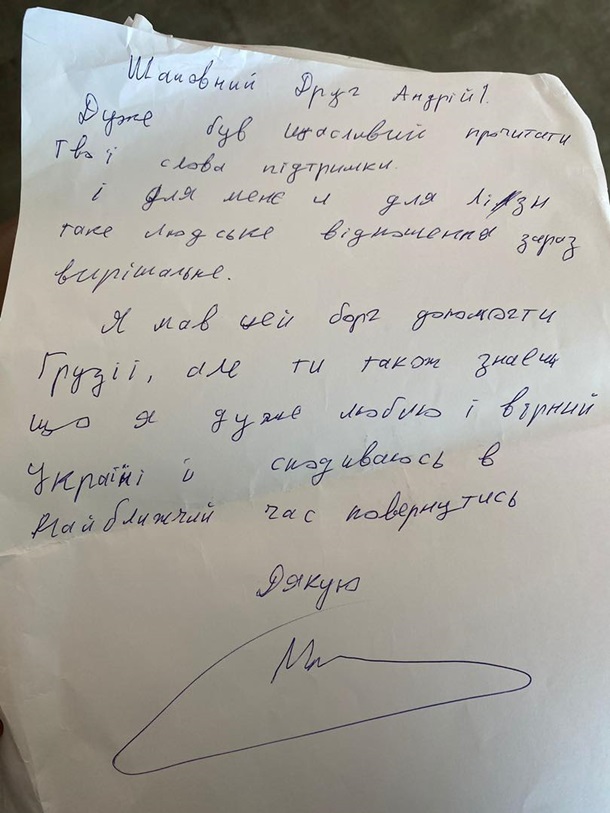 Шановний Друг Андрій!
Дуже був щасливий прочитати
твої слова підтримки.
і для мене и для Лізи
таке людське відношення зараз
вирішальне.
Я мав цей борг допомогти
Грузії, але ти також знаеш
що я дуже люблю і вірний
Україні й сподиваюсь в
найближчий час повернутись
Дякую